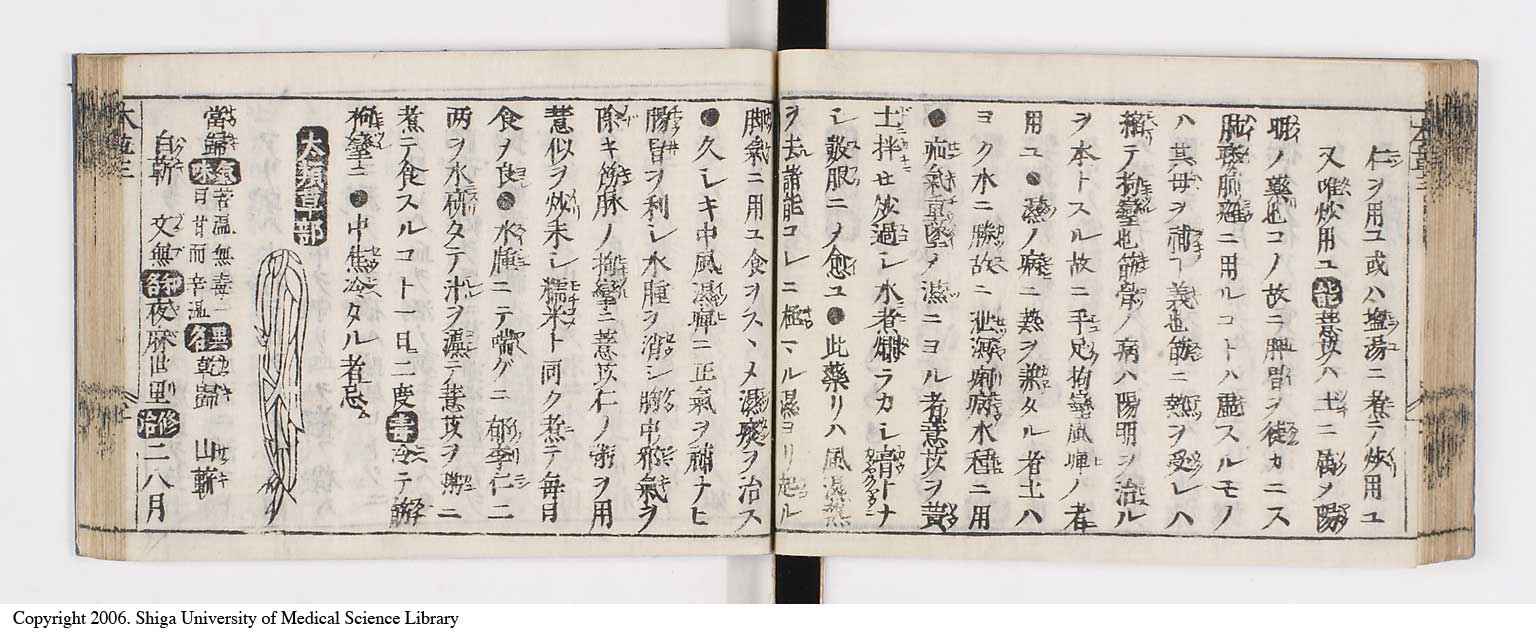 仁ヲ用ユ或ハ塩湯ニ煮テ炒用ユ
又唯炒用ユ能薏苡ハ土ニ属メ陽
明ノ薬也コノ故ニ脾胃ヲ徤カニス
肺痿肺癰ニ用ルコトハ虚スルモノ
ハ其母ヲ補フ義也筋ニ熱ヲ受レハ
縮テ拘攣也筋骨ノ病ハ陽明ヲ治ル
ヲ本トスル故ニ手足拘攣風痺ノ者
用ユ●湿ノ病ニ熱ヲ兼タル者土ハ
ヨク水ニ勝故ニ泄瀉痢病水種ニ用
●疝氣重墜ノ湿ニヨル者薏苡ヲ黄
土拌セ炒過シ水煮爛ラカシ膏トナ
シ数服ニメ愈ユ●此薬リハ風湿熱
ヲ去諸能コレニ極マル湿ヨリ起ル
脚氣ニ用ユ食ヲスヽメ湿痰ヲ治ス
●久シキ中風湿痺ニ正氣ヲ補ナヒ
腸胃ヲ利シ水腫ヲ消シ胸中邪氣ヲ
除キ筋脉ノ拘攣ニ薏苡仁ノ粥ヲ用
薏似ヲ炒末シ糯米ト同ク煮テ毎日
食ヲ食●水腫ニテ喘グニ郁李仁二
两ヲ水研タテ汁ヲ濾テ薏苡ヲ粥ニ
煮テ食スルコト一日二度毒冷ヘテ
拘攣ニ●中焦冷タル者忌ム
大類草部
當歸 氣味 苦温無毒一曰甘而辛温 異名 乾歸 山蘄
白蘄 文無 和名 夜麻世里 修治 二八月